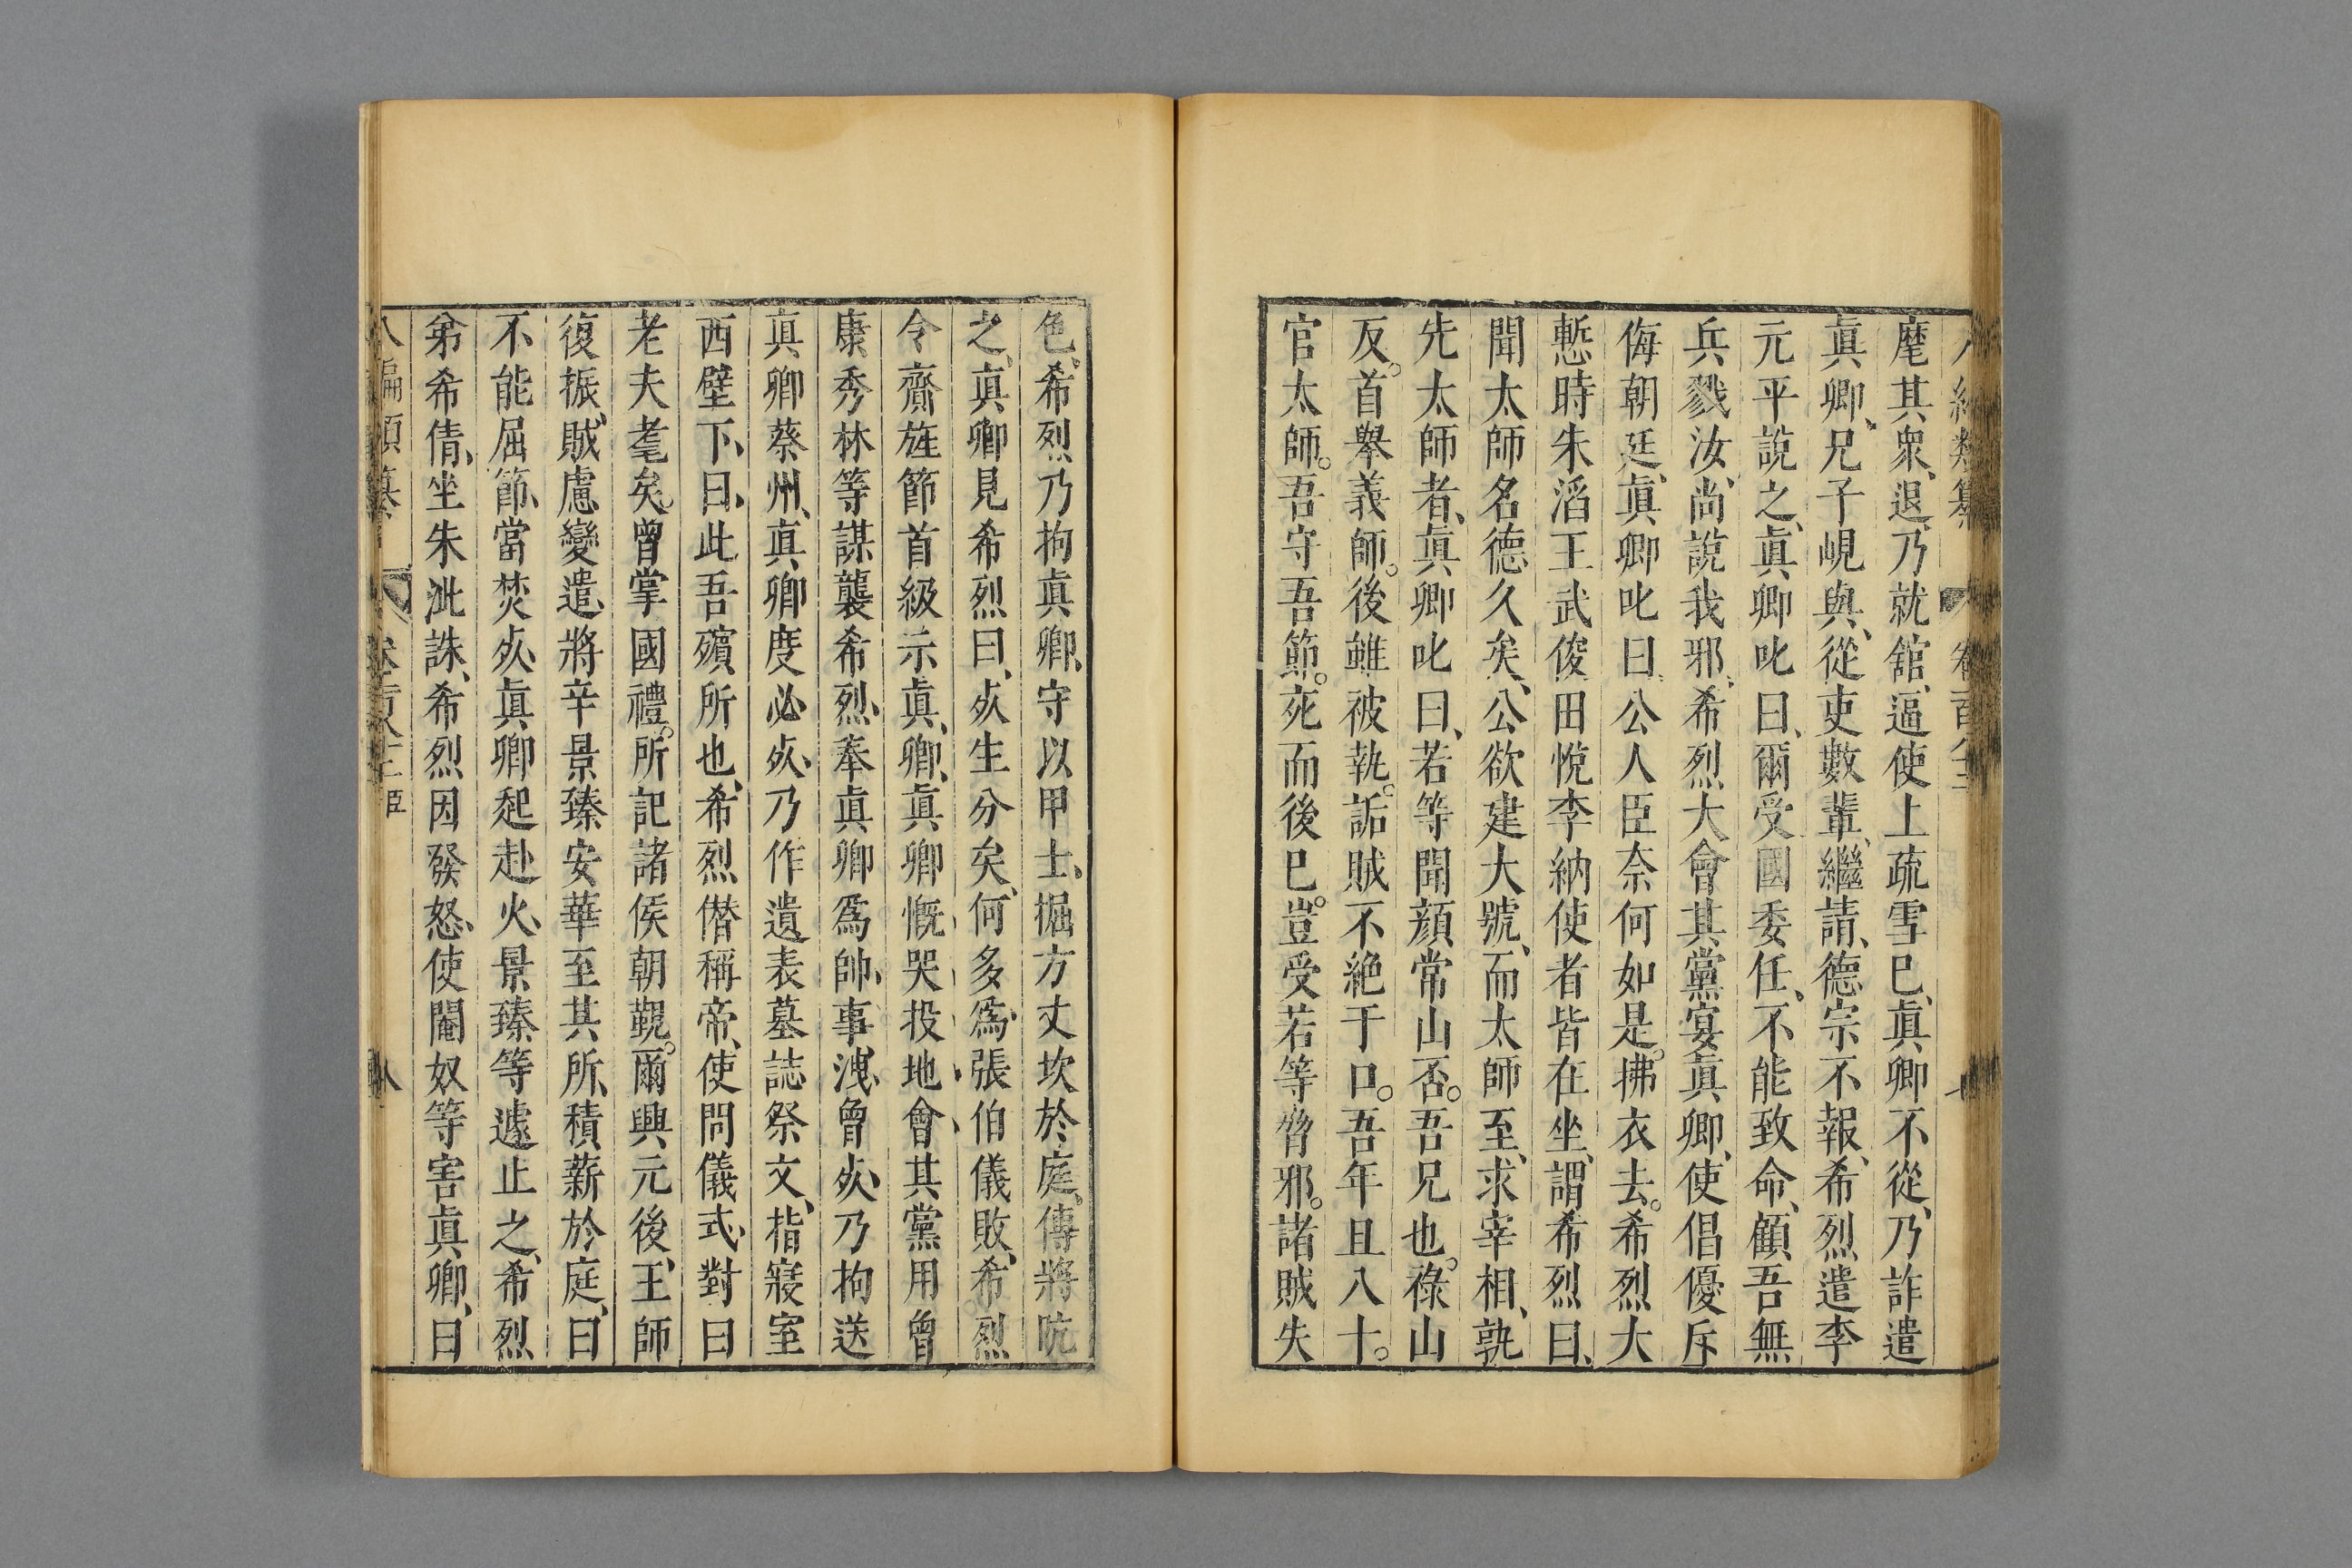 麾其衆、退、乃就舘、逼使上疏雪巳、眞卿不從、乃詐遣
眞卿、兄子峴與、從吏數輩、繼請、德宗不報、希烈遣李
元平說之、眞卿叱曰、爾受國委任、不能致命、顧吾無
兵戮汝、尚說我邪、希烈大會其黨宴眞卿、使倡優斥
侮朝廷、眞卿叱曰、公人臣奈何如是。拂衣去。希烈大
慙時朱滔王武俊田悅李納使者皆在坐、謂希烈曰、
聞太師名德久矣、公欲建大號、而太師至、求宰相、孰
先太師者、眞卿叱曰、若等聞顏常山否。吾兄也。祿山
反。首舉義師。後雖被執。詬賊不絶于口。吾年且八十。
官太師。吾守吾節。死而後巳。豈受若等脅邪。諸賊失
色、希烈乃拘眞卿、守以甲士、掘方丈坎於庭、傳將阬
之、眞卿見希烈曰、死生分矣、何多爲、張伯儀敗、希烈
令齎旌節首級示眞、卿、眞卿慨哭投地、會、其黨用曾
康秀林等謀襲希烈、奉眞卿爲帥、事、洩、曾死、乃拘送
眞卿蔡州、眞卿度必死、乃作遺表墓誌祭文、指寢室
西壁下、曰、此吾殯所也、希烈僭稱帝、使問儀式、對曰
老夫耄矣。曾掌國禮。所記諸侯朝覲。爾興元後、王師
復振、賊慮變遣、將辛景臻安華至其所、積薪於庭、曰
不能屈節、當焚死、眞卿起赴火、景臻等遽止之、希烈
弟希倩、坐朱泚誅、希烈因發怒、使閹奴等害眞卿、曰